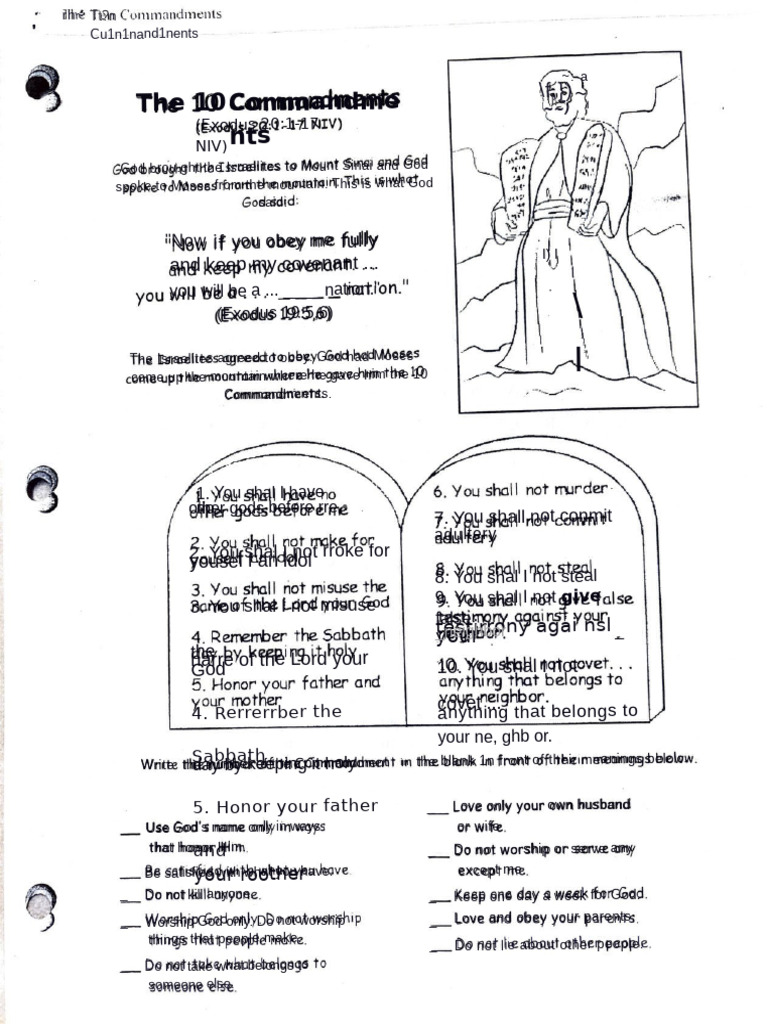 The Ten Commandments
Cu1n1nand1nents
The 10 Commandments
(Exodus 20:1-17 NIV)
God brought the Israelites to Mount Sinai and God
spoke to Moses from the mountain. This is what God
said:
"Now if you obey me fully
and keep my covenant ...
you will be a ... ______ nation."
(Exodus 19:5,6)
The Israelites agreed to obey. God had Moses
come up the mountain where He gave him the 10
Commandments.
1. You shall have no
other gods before me
2. You shall not make for
yourself an idol
3. You shall not misuse the
name of the Lord your God
4. Remember the Sabbath
day by keeping it holy
5. Honor your father and
your mother
6. You shall not murder
7. You shall not commit
adultery
8. You shall not steal
9. You shall not give false
testimony against your
neighbor.
10. You shall not covet...
anything that belongs to
your neighbor.
4. Rerrerrber the
Sabbath
5. Honor your father
and
your mother
anything that belongs to
your ne, ghb or.
Write the number of the Commandment in the blank in front of their meanings below.
___ Use God's name only in ways
that honor Him.
___ Be satisfied with what you have.
___ Do not kill anyone.
___ Worship God only. Do not worship
things that people make.
___ Do not take what belongs to
someone else.
___ Love only your own husband
or wife.
___ Do not worship or serve any
except me.
___ Keep one day a week for God.
___ Love and obey your parents.
___ Do not lie about other people.